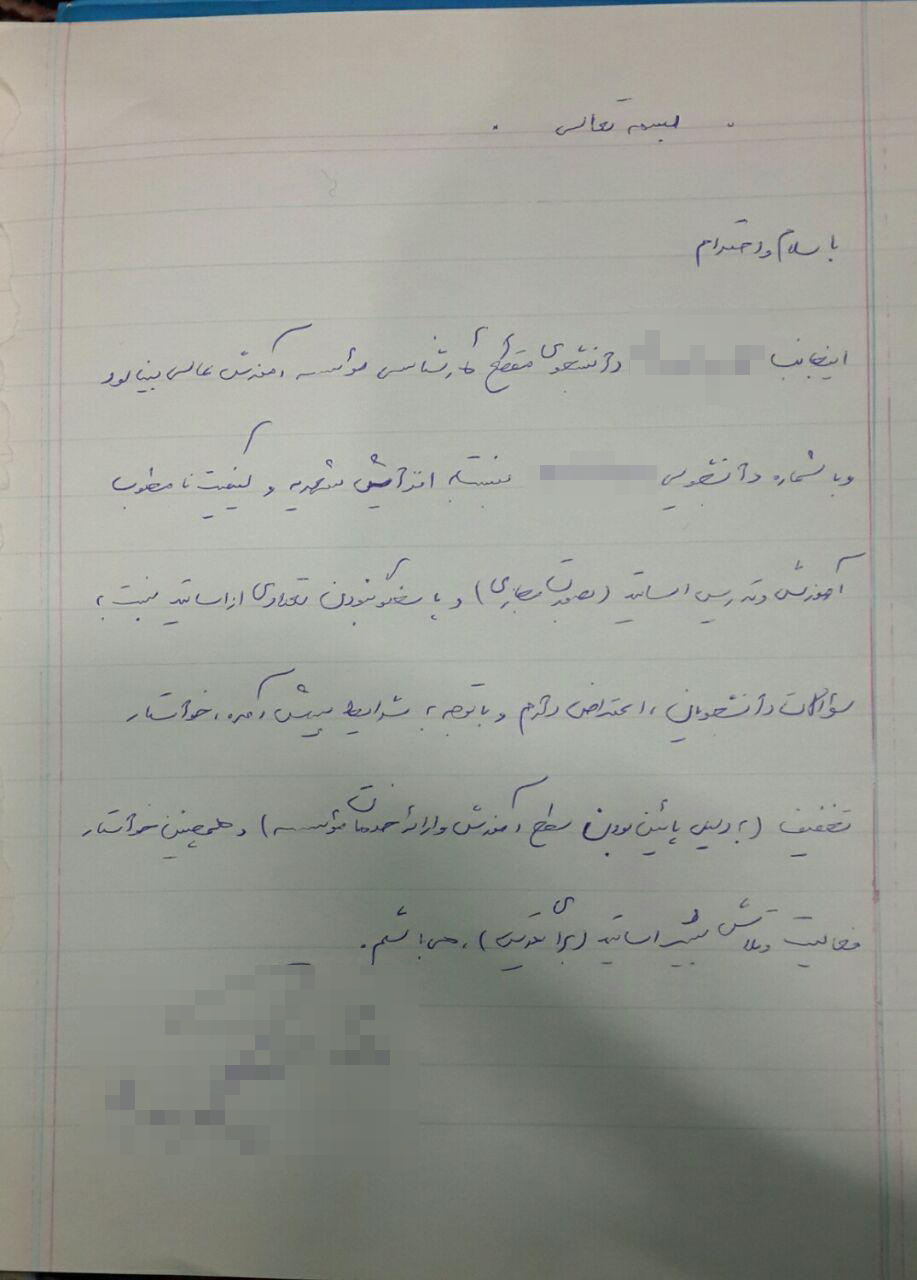 بسمه تعالی
با سلام و احترام
اینجانب دانشجوی مقطع کارشناسی مؤسسه آموزش عالی بینالود
و با شماره دانشجویی نسبت به افزایش شهریه و کیفیت نامطلوب
آموزش و تدریس اساتید (بصورت مجازی) و پاسخگو نبودن تعدادی از اساتید نسبت به
سؤالات دانشجویان، اعتراض دارم و با توجه به شرایط پیش آمده، خواستار
تخفیف (به دلیل پائین بودن سطح آموزش و ارائه خدمات مؤسسه) و همچنین خواستار
فعالیت و تلاش بیشتر اساتید (برای تدریس)، می باشم.